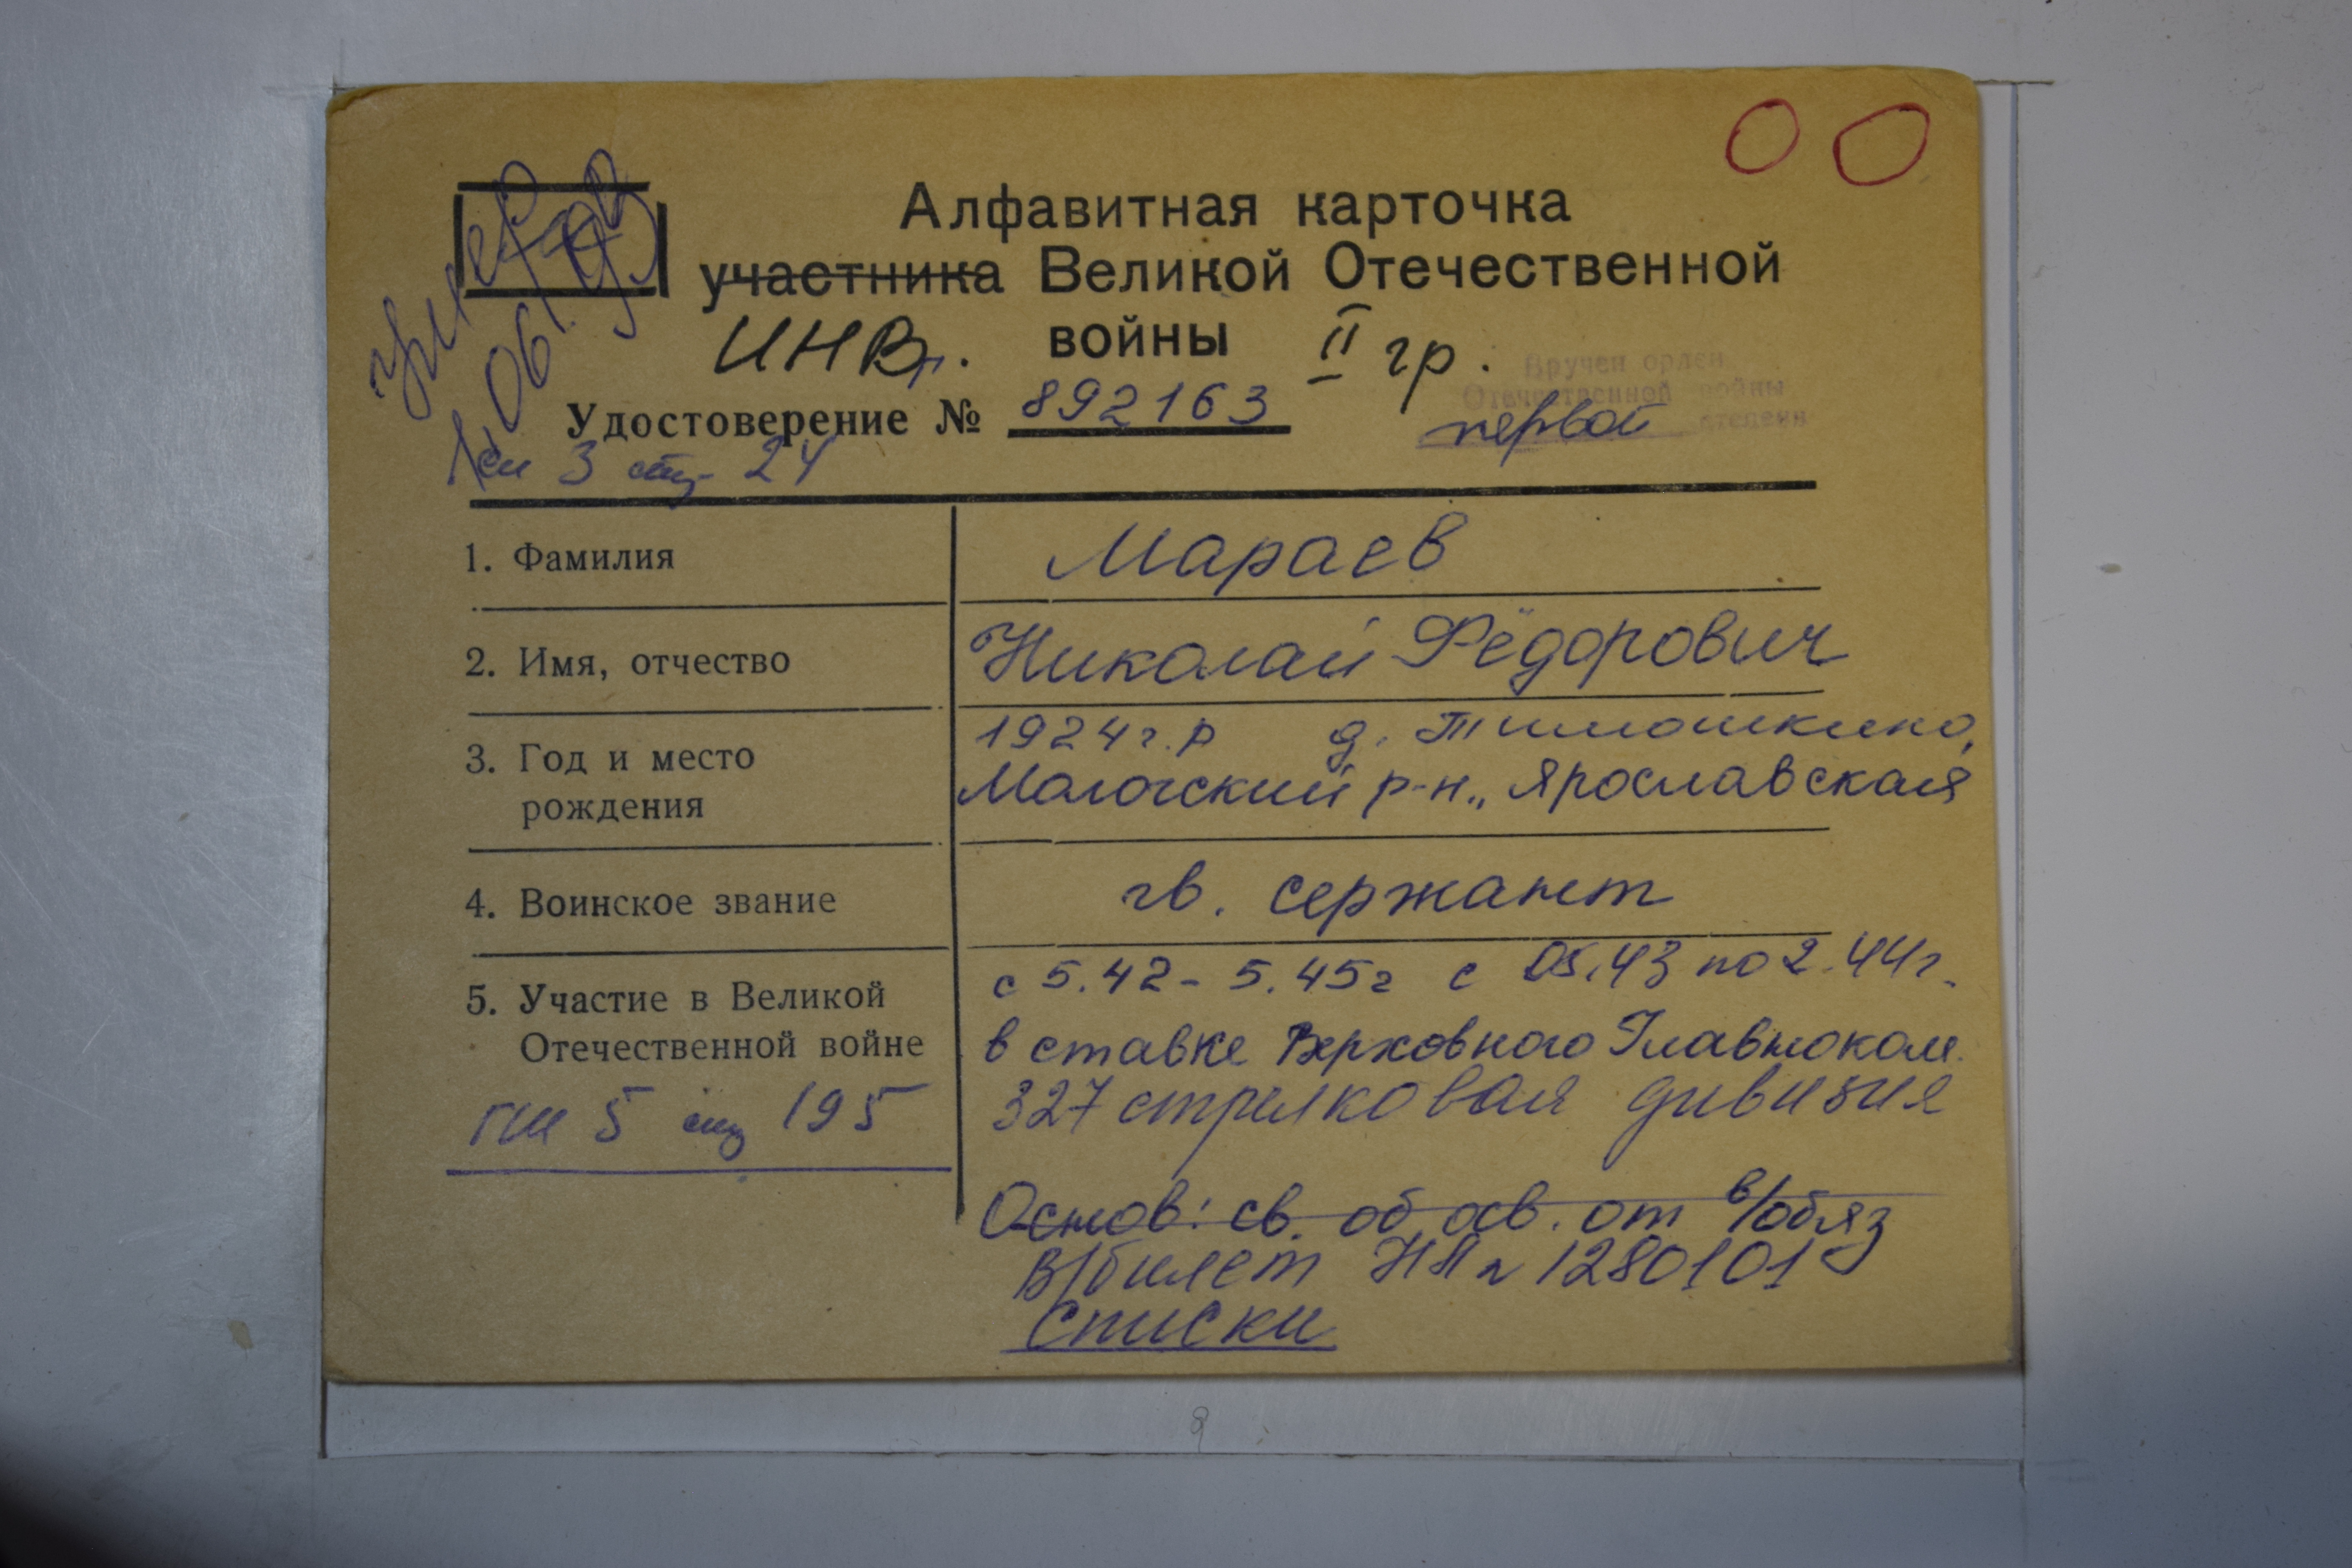 Алфавитная карточка
участника Великой Отечественной
инв. войны II гр.
Вручен орден
Отечественной войны
первой степени
Удостоверение № 892163
3 стр 24
1. Фамилия Мараев
2. Имя, отчество Николай Фёдорович
3. Год и место рождения 1924 г.р д. Тимошкино,
Мологский р-н., Ярославская
4. Воинское звание гв. сержант
5. Участие в Великой Отечественной войне с 5.42 - 5.45г с 05.43 по 2.44г.
в ставке Верховного Главноком.
327 стрелковая дивизия
5 стр 195
Основ: св. об осв. от в/обяз
в/билет НП № 1280101
списки